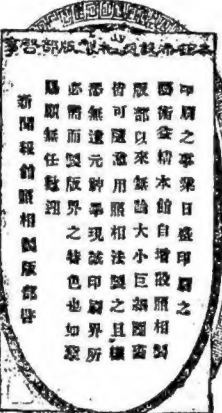 製版部啓事
印刷之事業日盛印刷之
藝術益精本館自增設照相製
版部以來無論大小巨細圖畫
皆可隨意用照相法製之且纖
悉無遺元神畢現誠印刷界所
必需而製版界之特色也如蒙
賜顧無任歡迎
新聞報館照相製版部啓